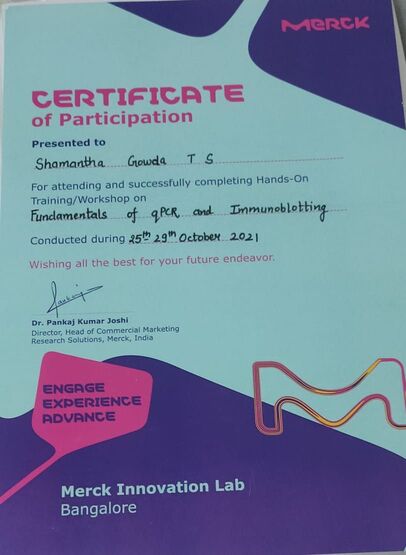 MERCK
CERTIFICATE
of Participation
Presented to
Shamantha Gowda T S
For attending and successfully completing Hands-On
Training/Workshop on
Fundamentals of qPCR and Immunoblotting
Conducted during 25th 29th October 2021
Wishing all the best for your future endeavor.
Pankaj
Dr. Pankaj Kumar Joshi
Director, Head of Commercial Marketing
Research Solutions, Merck, India
ENGAGE
EXPERIENCE
ADVANCE
Merck Innovation Lab
Bangalore